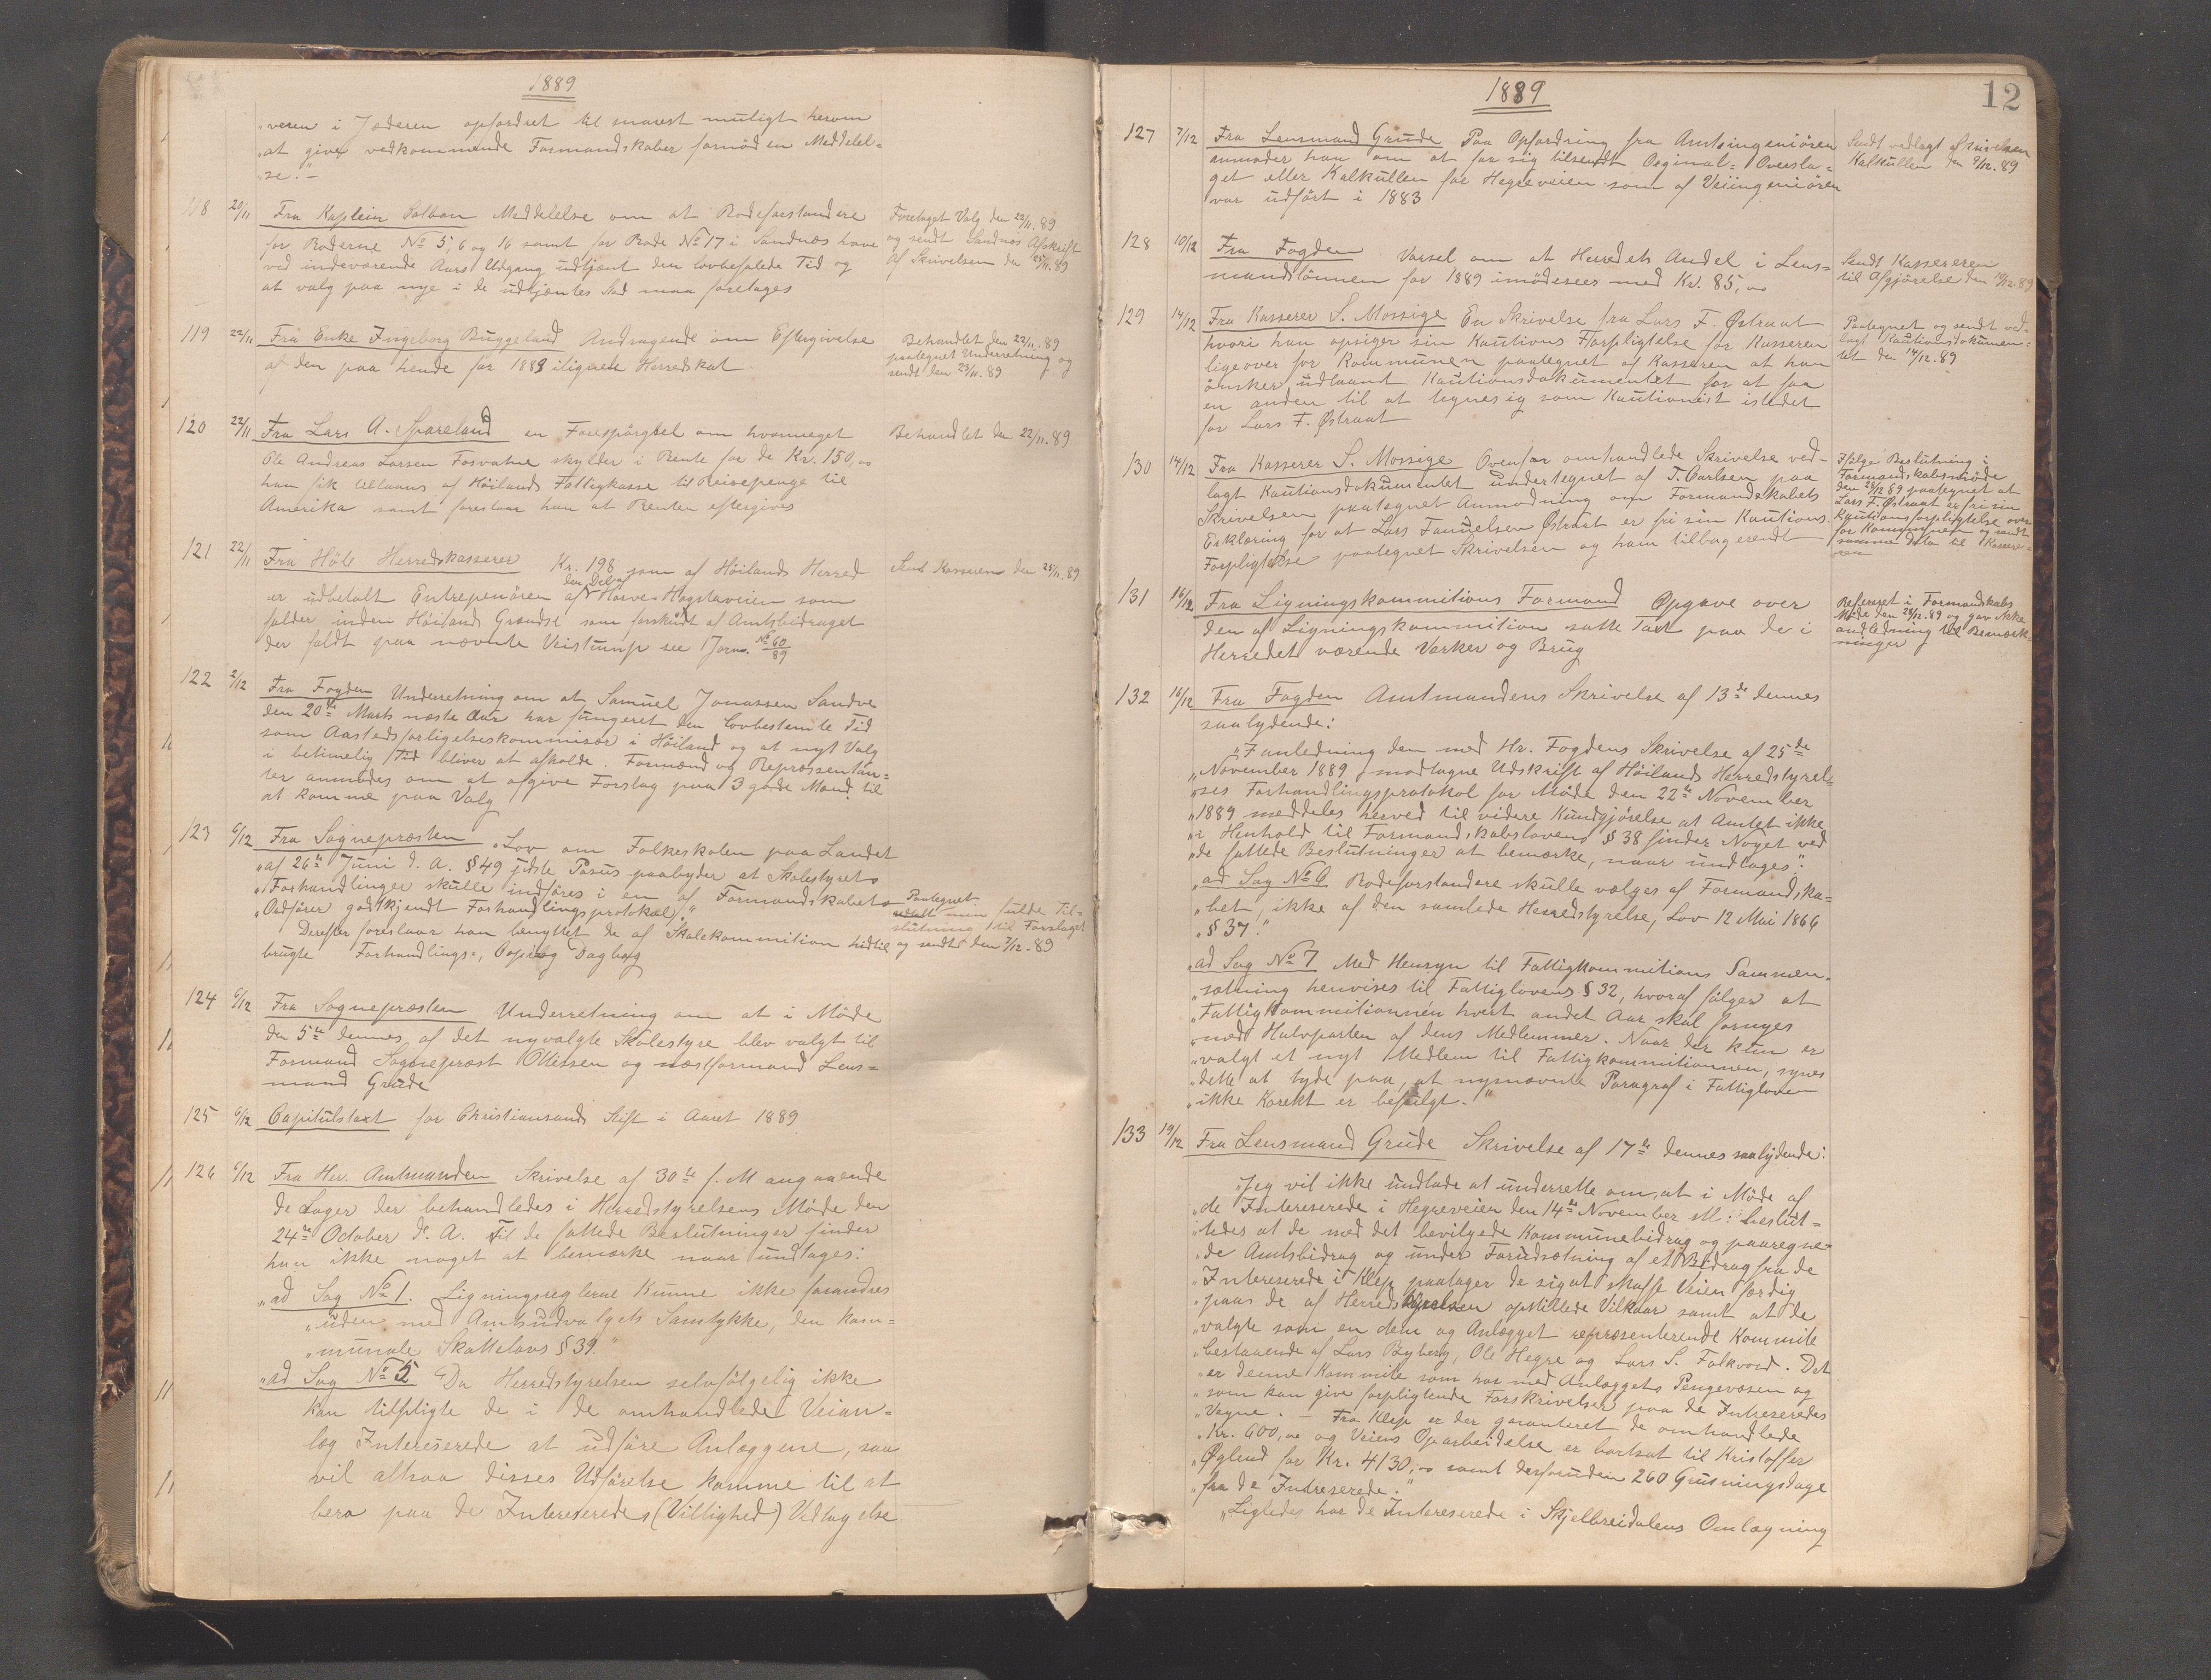 1889
„veren i Jæderen opfordret til snarest muligt herom
„at give vedkommende Formandskaber fornöden Meddelel=
„se." —
118 20/11 Fra Kaptein Meddelelse om at Rodeforstandere
for Roderne No 5, 6 og 16 samt for Rode No 17 i Sandnæs have
ved indeværende Aars Udgang udtjent den lovbefalede Tid og
at valg paa nye i de udtjentes Sted maa foretages
Foretaget Valg den 22/11. 89
og sendt Sandnæs Afskrift
af Skrivelsen den 25/11. 89
119 22/11 Fra Enke Ingeborg Buggeland Andragende om Eftergivelse
af den paa hende for 1889 ilignede Herredskat
Behandlet den 22/11. 89
paategnet Underretning og
sendt den 23/11. 89
120 22/11 Fra Lars A. Skareland en Forespörgsel om hvormeget
Ole Andreas Larsen Fosvatne skylder i Rente for de Kr. 150,00
han fik tillaans af Höilands Fattigkasse til Reisepenge til
Amerika samt foreslaar han at Renten eftergives
Behandlet den 22/11. 89
121 22/11 Fra Höle Herredskasserer Kr. 198 som af Höilands Herred
den Del af
er udbetalt Entrepenören af Horve-Hogstaveien som
falder inden Höilands Grændse som forskudt af Amtsbidraget
der faldt paa nævnte Veistump see Jorn. No 60/89
Sendt Kassereren den 25/11. 89
122 2/12 Fra Fogden Underretning om at Samuel Jonassen Sandve
den 20de Marts næste Aar har fungeret den lovbestemte Tid
som Aastedsforligelseskommisær i Höiland og at nyt Valg
i betimelig Tid bliver at afholde. Formænd og Repræsentan=
ter anmodes om at afgive Forslag paa 3 gode Mænd til
at komme paa Valg
123 6/12 Fra Sognepræsten „Lov om Folkeskolen paa Landet
„af 26de Juni d. A. § 49 sidste Pasus paabyder at Skolestyrets
„Forhandlinger skulle indföres i en af Formandskabets
„Ordförer godkjendt Forhandlingsprotokol."
Derefter foreslaar han benyttet de af Skolekommitionen hidtil
brugte Forhandlings=, Copi og Dagbog
Paategnet
min fulde Til=
slutning til Forslaget
og sendt den 7/12. 89
124 6/12 Fra Sognepræsten Underretning om at i Möde
den 5te dennes af det nyvalgte Skolestyre blev valgt til
Formand Sognepræst Ollessen og næstformand Lens=
mand Grude
125 6/12 Capitulstaxt for Christiansands Stift i Aaret 1889
126 6/12 Fra Hr. Amtmanden Skrivelse af 30te f. M angaaende
de Sager der behandledes i Herredstyrelsens Möde den
24de October d. A. Til de fattede Beslutninger finder
han ikke noget at bemærke naar undtages:
„ad Sag No 1. Ligningsreglerne kunne ikke forandres
„uden med Amtsudvalgets Samtykke, den kom=
„munale Skattelovs § 39."
„ad Sag No 5 Da Herredstyrelsen selvfölgelig ikke
kan tilpligte de i de omhandlede Veian=
læg Intereserede at udföre Anlæggene, saa
vil altsaa disses Udförelse komme til at
bero paa de Intereseredes (Villighed) Vedtagelse
12
1889
127 7/12 Fra Lensmand Grude Paa Opfordring fra Amtsingeniören
anmoder han om at faa sig tilsendt Orginal= Oversla=
get eller Kalkullen for Hegreveien som af Veiingeniören
var udfört i 1883
Sendt vedlagt Skrivelsen
Kalkullen den 9/12. 89
128 10/12 Fra Fogden Varsel om at Herredets Andel i Lens=
mandslönnen for 1889 imödesees med Kr. 85,00
Sendt Kassereren
til Afgjörelse den 14/12. 89
129 14/12 Fra Kasserer S. Mossige En Skrivelse fra Lars F. Østraat
hvori han opsiger sin Kautions Forpligtelse for Kasseren
ligeover for Kommunen paategnet af Kasseren at han
önsker udlaant Kautionsdokumentet for at faa
en anden til at tegne sig som Kautionist istedet
for Lars F. Østraat
Paategnet og sendt ved-
lagt Kautionsdokumen=
tet den 14/12. 89
130 14/12 Fra Kasserer S. Mossige Ovenfor omhandlede Skrivelse ved-
lagt Kautionsdokumentet undertegnet af T. Carlsen paa
Skrivelsen paategnet Anmodning om Formandskabets
Erklæring for at Lars Fanuelsen Østraat er fri sin Kautions
Forpligtelse paategnet Skrivelsen og ham tilbagesendt
Ifölge Beslutning i
Formandskabsmöde
den 28/12 89 paategnet at
Lars F. Østraat er fri sin
Kautionsforpligtelse over
for Kommunen og sendt
samme Dato til Kassere-
ren
131 16/12 Fra Ligningskommitions Formand Opgave over
den af Ligningskommition satte Taxt paa de i
Herredet værende Verker og Brug
Refereret i Formandskabs
Möde den 28/12. 89 og gav ikke
andledning til Bemærk-
ninger
132 16/12 Fra Fogden Amtmandens Skrivelse af 13de dennes
saalydende:
„I anledning den med Hr. Fogdens Skrivelse af 25de
„November 1889 modtagne Udskrift af Höilands Herredstyrel=
„ses Forhandlingsprotokol for Möde den 22de November
„1889 meddeles herved til videre Kundgjörelse at Amtet ikke
„i Henhold til Formandskabslovens § 38 finder Noget ved
„de fattede Beslutninger at bemærke, naar undtages":
„ad Sag No 6 Rodeforstandere skulle vælges af Formandska=
„bet, ikke af den samlede Herredstyrelse, Lov 12 Mai 1866
„§ 37."
„ad Sag No 7 Med Hensyn til Fattigkommitions Sammen-
„sætning henvises til Fattiglovens § 32, hvoraf fölger at
„Fattigkommitionnen hvert andet Aar skal fornyes
„med Halvparten af dens Medlemmer. Naar der kun er
„valgt et nyt Medlem til Fattigkommitionnen, synes
„dette at tyde paa, at nysnævnte Paragraf i Fattigloven
„ikke Korekt er befulgt."
133 19/12 Fra Lensmand Grude Skrivelse af 17de dennes saalydende:
Jeg vil ikke undlade at underrette om, at i Möde af
„de Intereserede i Hegreveien den 14de November sl: beslut=
„tedes at de med det bevilgede Kommunebidrag og paaregne=
„de Amtsbidrag og under Forudsætning af et Bidrag fra de
„Intereserede i Klep paatager de sig at skaffe Veien færdig
„paa de af Herredstyrelsen opstillede Vilkaar samt at de
„valgte som en dem og Anlægget repræsenterende Kommite
„bestaaende af Lars Byberg, Ole Hegre og Lars S. Folkvord. Det
„er denne Kommite som har med Anlæggets Pengevæsen og
„som kan give forpligtende Forskrivelser paa de Intereseredes
„Vegne. — Fra Klep er der garanteret de omhandlede
„Kr. 600,00 og Veiens Oparbeidelse er bortsat til Kristoffer
„Øglend for Kr. 4130,00 samt desforuden 260 Grusningsdage
„fra de Intereserede."
„Ligledes har de Intereserede i Skjelbreidalens Omlægning